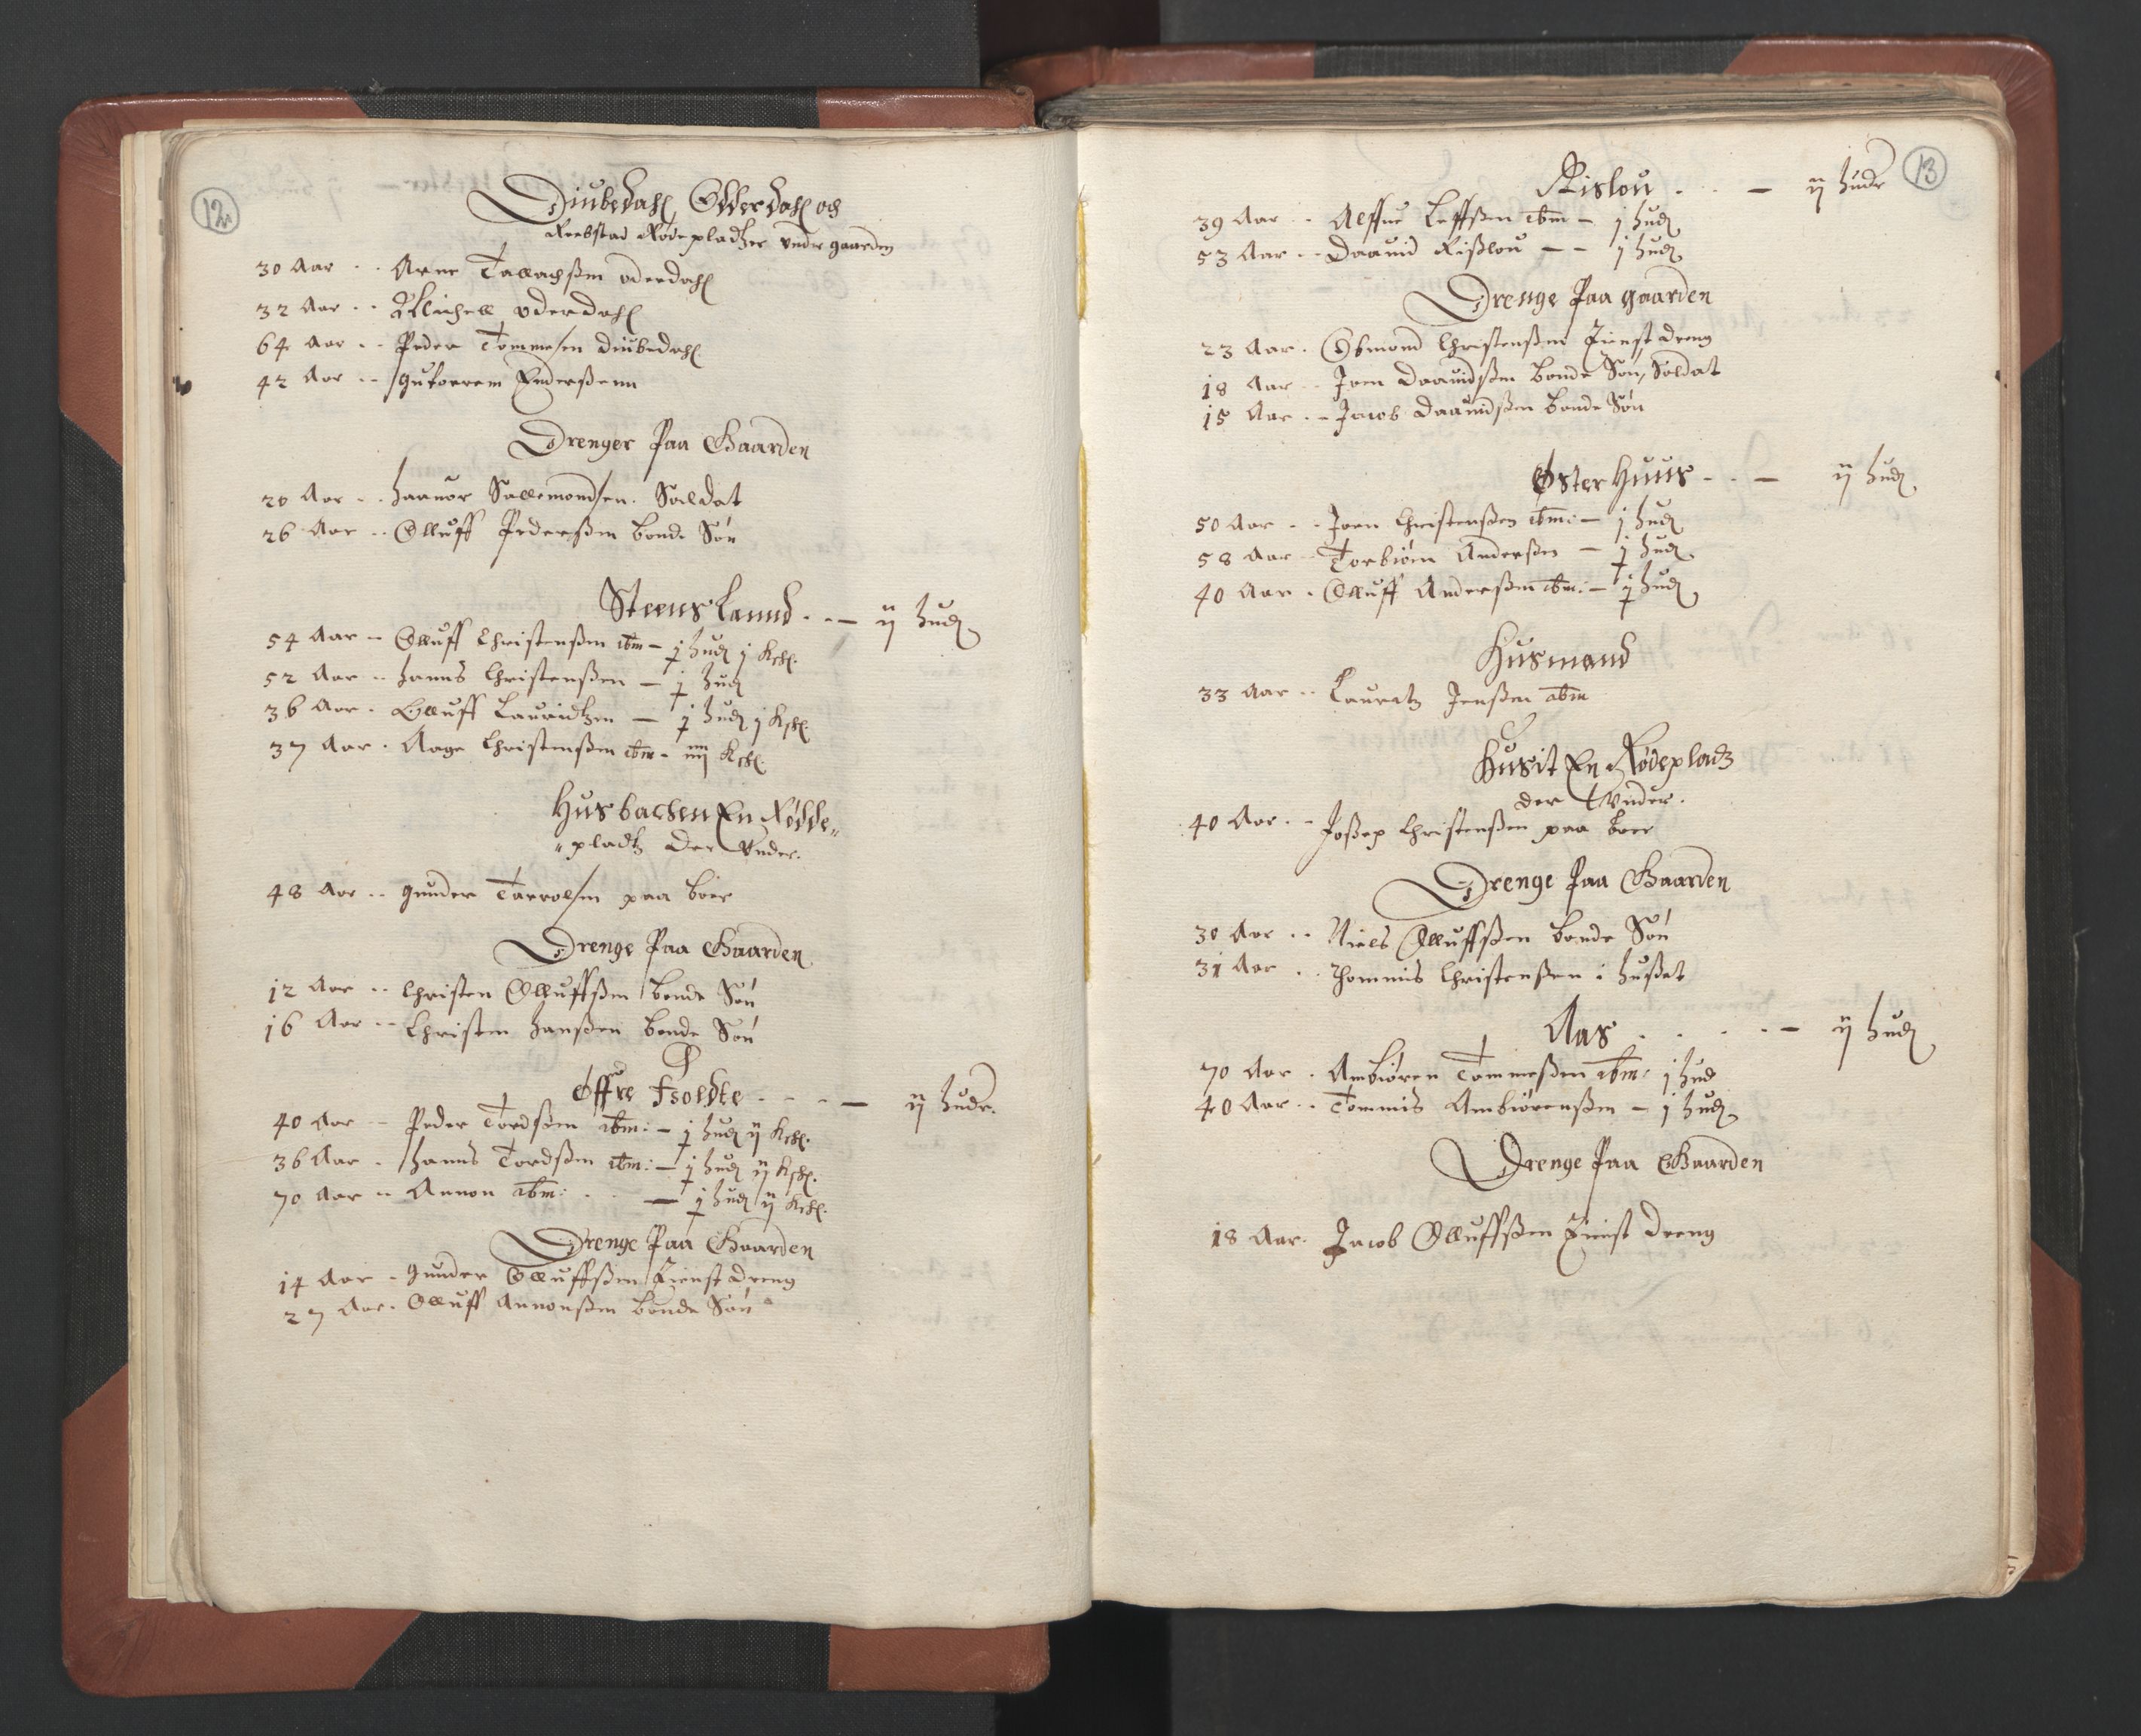 12.
Diubedahl, Odderdahl och
Reebstad Rødepladtzer under gaarden
30 Aar .. Arne Tallachsßen oderdahl
32 Aar .. Michell oderdahl
64 Aar .. Peder Tommesen Diubedahl
42 Aar .. gutorrem Pederßenn
Drenger Paa Gaarden
20 Aar .. haauor Sallemondsen. Saldat
26 Aar .. Olluff Pederßen bonde Søn
Steens Lannd . . — ij hud
54 Aar .. Olluff Christenßen ibm — j hud j Kchl.
52 Aar .. hanns Christenßen — j hud
36 Aar . Olluff Lauridtzen — j hud j Kchl.
37 Aar . Aage Christenßen ibm - iiij Kchl.
Husbachen En Rødde„
„pladtz der under.
48 Aar .. gunder Tarrolsen paa boer
Drenge Paa Gaarden
12 Aar .. Christen Olluffßen bonde Søn
16 Aar .. Christen hanßen bonde Søn
Øffre Fsoldte . . . — ij hudr.
40 Aar — Peder Tordßen ibm: — j hud ij Kchl.
36 Aar . hanns Tordßen ibm: — j hud ij Kchl.
70 Aar .. Annon ibm: . . — j hud ij Kchl.
Drenge Paa Gaarden
14 Aar . gunder Olluffßen Tienst dreng
27 Aar . Olluff Annonßen bonde Søn
13
Rislou . . — ij hudr
39 Aar .. Aeffue Leffßen ibm — j hud
53 Aar .. Daauid Rißlou — — j hud
Drenge Paa gaarden
23 Aar . Osmond Christenßen Tienst dreng
18 Aar .. Joen Daauidßen bonde Søn, Soldat
15 Aar .. Jacob Daauidßen bonde Søn
Øster Huus . . — ij hud
50 Aar .. Joen Christenßen ibm: — j hud
58 Aar .. Torbiørn Anderßen — j hud
40 Aar . Olluff Anderßen ibm: — j hud
Husmand
33 Aar .. Lauratz Jenßen ibm
Husit En Rødepladz
der under.
40 Aar .. Joßep Christenßen paa boer
Drenge Paa Gaarden
30 Aar .. Niels Olluffßen bonde Søn
31 Aar .. Thommis Christenßen i hußet
Aas . . . . — ij hud
70 Aar . Ambiøren Tommeßen ibm: j hud
40 Aar .. Tommis Ambiørenßen — j hud
Drenge Paa Gaarden
18 Aar. Jacob Olluffßen Tienst dreng